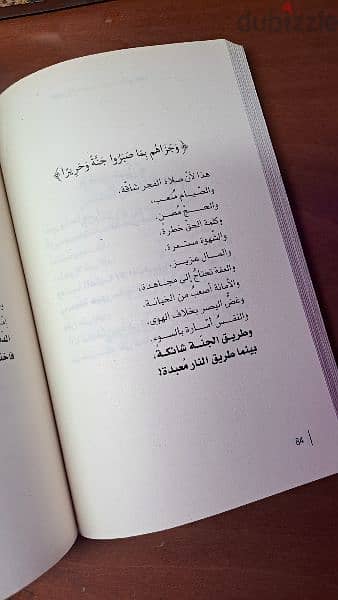 dubizzle
﴿وَجَزَاهُم بِمَا صَبَرُوا جَنَّةً وَحَرِيرًا﴾
هذا لأن صلاة الفجر شاقّة،
والصّيام مُتعب،
والحجّ مُضنٍ،
وكلمة الحقّ خطرة،
والشّهوة مستعرة،
والمال عزيز،
والعفة تحتاجُ إلى مجاهدة،
والأمانة أصعبُ من الخيانة،
وغضّ البصر بخلاف الهوى،
والنفسُ أمّارة بالسوء،
وطريق الجنّة شائكة،
بينما طريق النار مُعبدة!
84